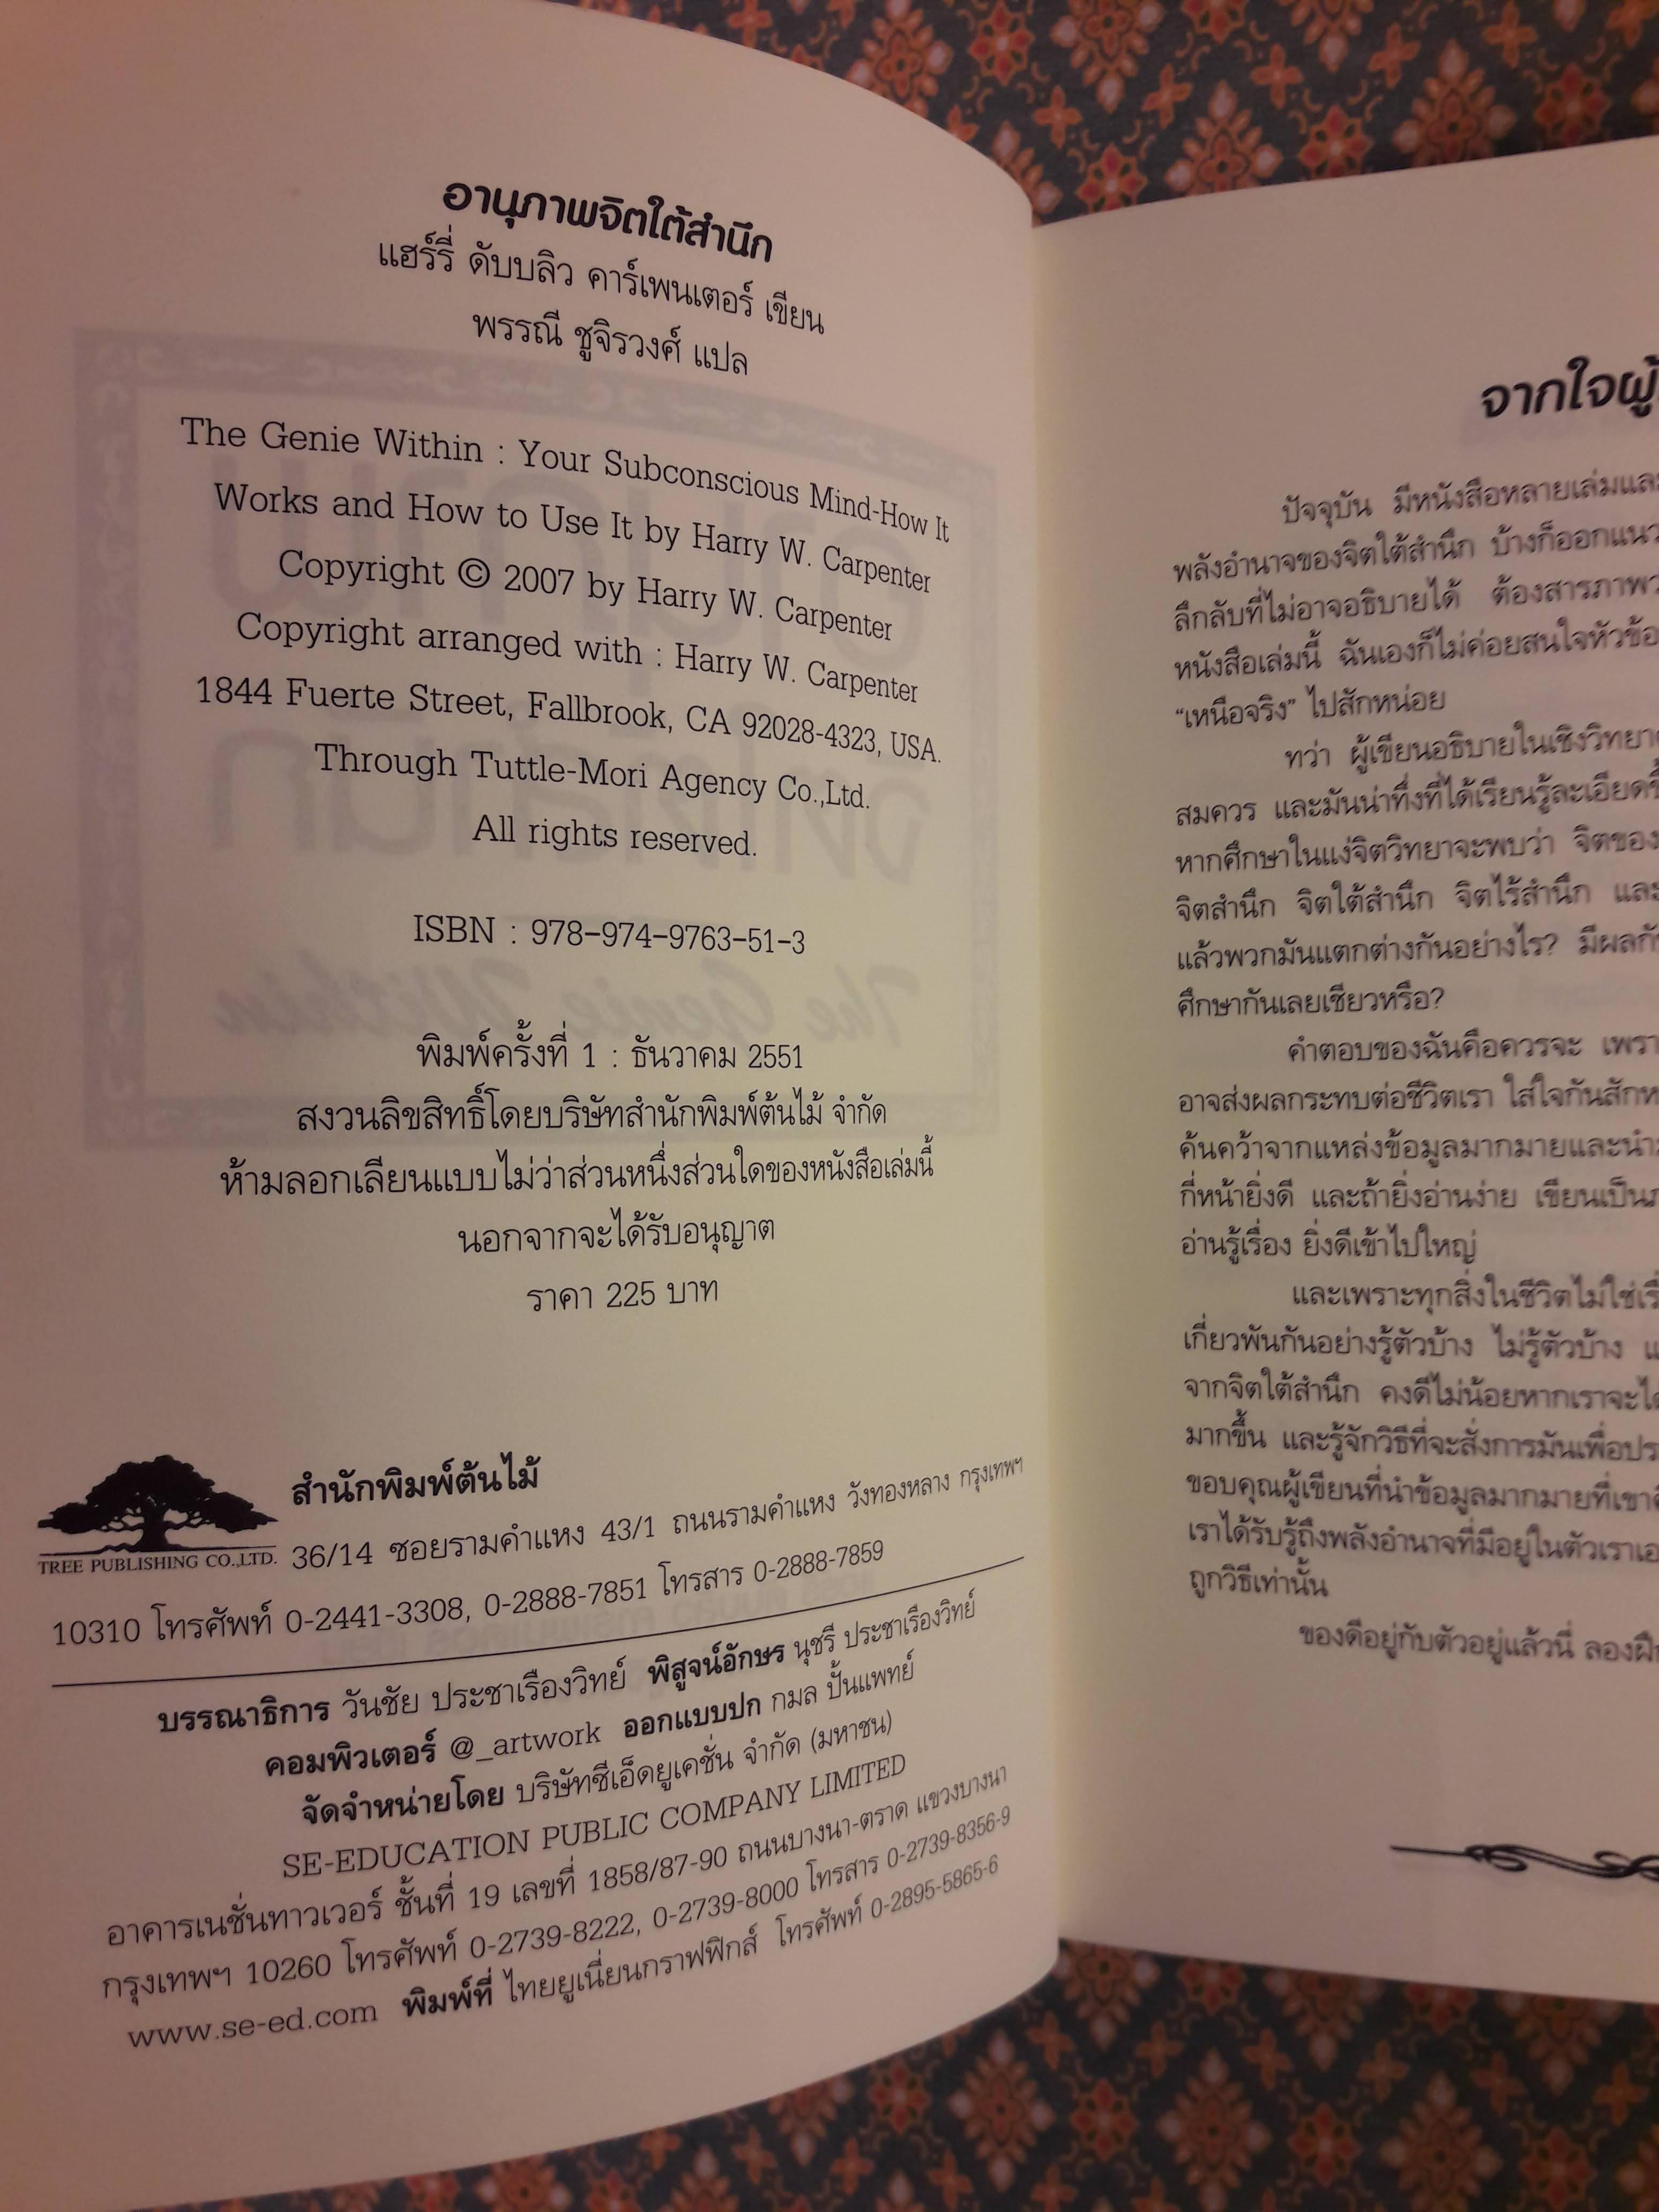 อานุภาพจิตใต้สำนึก
แฮร์รี่ ดับบลิว คาร์เพนเตอร์ เขียน
พรรณี ชูจิรวงศ์ แปล
The Genie Within : Your Subconscious Mind-How It
Works and How to Use It by Harry W. Carpenter
Copyright © 2007 by Harry W. Carpenter
Copyright arranged with : Harry W. Carpenter
1844 Fuerte Street, Fallbrook, CA 92028-4323, USA.
Through Tuttle-Mori Agency Co.,Ltd.
All rights reserved.
ISBN : 978-974-9763-51-3
พิมพ์ครั้งที่ 1 : ธันวาคม 2551
สงวนลิขสิทธิ์โดยบริษัทสำนักพิมพ์ต้นไม้ จำกัด
ห้ามลอกเลียนแบบไม่ว่าส่วนหนึ่งส่วนใดของหนังสือเล่มนี้
นอกจากจะได้รับอนุญาต
ราคา 225 บาท
TREE PUBLISHING CO.,LTD.
สำนักพิมพ์ต้นไม้
36/14 ซอยรามคำแหง 43/1 ถนนรามคำแหง วังทองหลาง กรุงเทพฯ
10310 โทรศัพท์ 0-2441-3308, 0-2888-7851 โทรสาร 0-2888-7859
บรรณาธิการ วันชัย ประชาเรืองวิทย์ พิสูจน์อักษร นุชรี ประชาเรืองวิทย์
คอมพิวเตอร์ @_artwork ออกแบบปก กมล ปั้นแพทย์
จัดจำหน่ายโดย บริษัทซีเอ็ดยูเคชั่น จำกัด (มหาชน)
SE-EDUCATION PUBLIC COMPANY LIMITED
อาคารเนชั่นทาวเวอร์ ชั้นที่ 19 เลขที่ 1858/87-90 ถนนบางนา-ตราด แขวงบางนา
กรุงเทพฯ 10260 โทรศัพท์ 0-2739-8222, 0-2739-8000 โทรสาร 0-2739-8356-9
www.se-ed.com พิมพ์ที่ ไทยยูเนี่ยนกราฟฟิกส์ โทรศัพท์ 0-2895-5865-6
จากใจผู้
ปัจจุบัน มีหนังสือหลายเล่มและ
พลังอำนาจของจิตใต้สำนึก บ้างก็ออกแนว
ลึกลับที่ไม่อาจอธิบายได้ ต้องสารภาพว
หนังสือเล่มนี้ ฉันเองก็ไม่ค่อยสนใจหัวข้อ
“เหนือจริง” ไปสักหน่อย
ทว่า ผู้เขียนอธิบายในเชิงวิทยา
สมควร และมันน่าทึ่งที่ได้เรียนรู้ละเอียดขึ้
หากศึกษาในแง่จิตวิทยาจะพบว่า จิตของ
จิตสำนึก จิตใต้สำนึก จิตไร้สำนึก และ
แล้วพวกมันแตกต่างกันอย่างไร? มีผลกั
ศึกษากันเลยเชียวหรือ?
คำตอบของฉันคือควรจะ เพรา
อาจส่งผลกระทบต่อชีวิตเรา ใส่ใจกันสักห
ค้นคว้าจากแหล่งข้อมูลมากมายและนำม
กี่หน้ายิ่งดี และถ้ายิ่งอ่านง่าย เขียนเป็นภ
อ่านรู้เรื่อง ยิ่งดีเข้าไปใหญ่
และเพราะทุกสิ่งในชีวิตไม่ใช่เรื่
เกี่ยวพันกันอย่างรู้ตัวบ้าง ไม่รู้ตัวบ้าง แ
จากจิตใต้สำนึก คงดีไม่น้อยหากเราจะได
มากขึ้น และรู้จักวิธีที่จะสั่งการมันเพื่อประ
ขอบคุณผู้เขียนที่นำข้อมูลมากมายที่เขา
เราได้รับรู้ถึงพลังอำนาจที่มีอยู่ในตัวเราเอ
ถูกวิธีเท่านั้น
ของดีอยู่กับตัวอยู่แล้วนี่ ลองฝึก